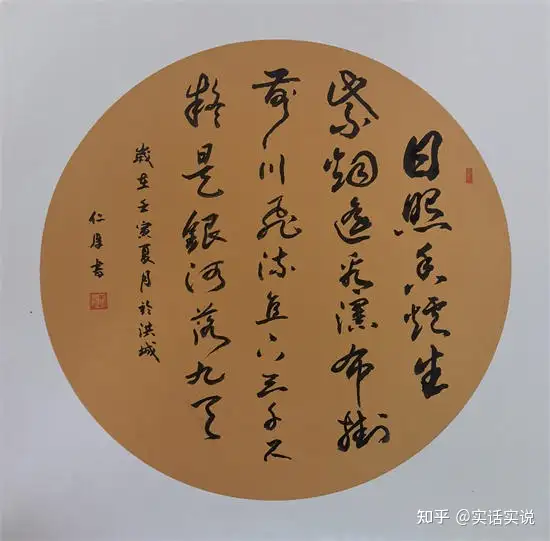 日照香爐生
紫烟遥看瀑布掛
前川飛流直下三千尺
疑是銀河落九天
歲在壬寅夏月於洪城
仁厚書
知乎 @实话实说